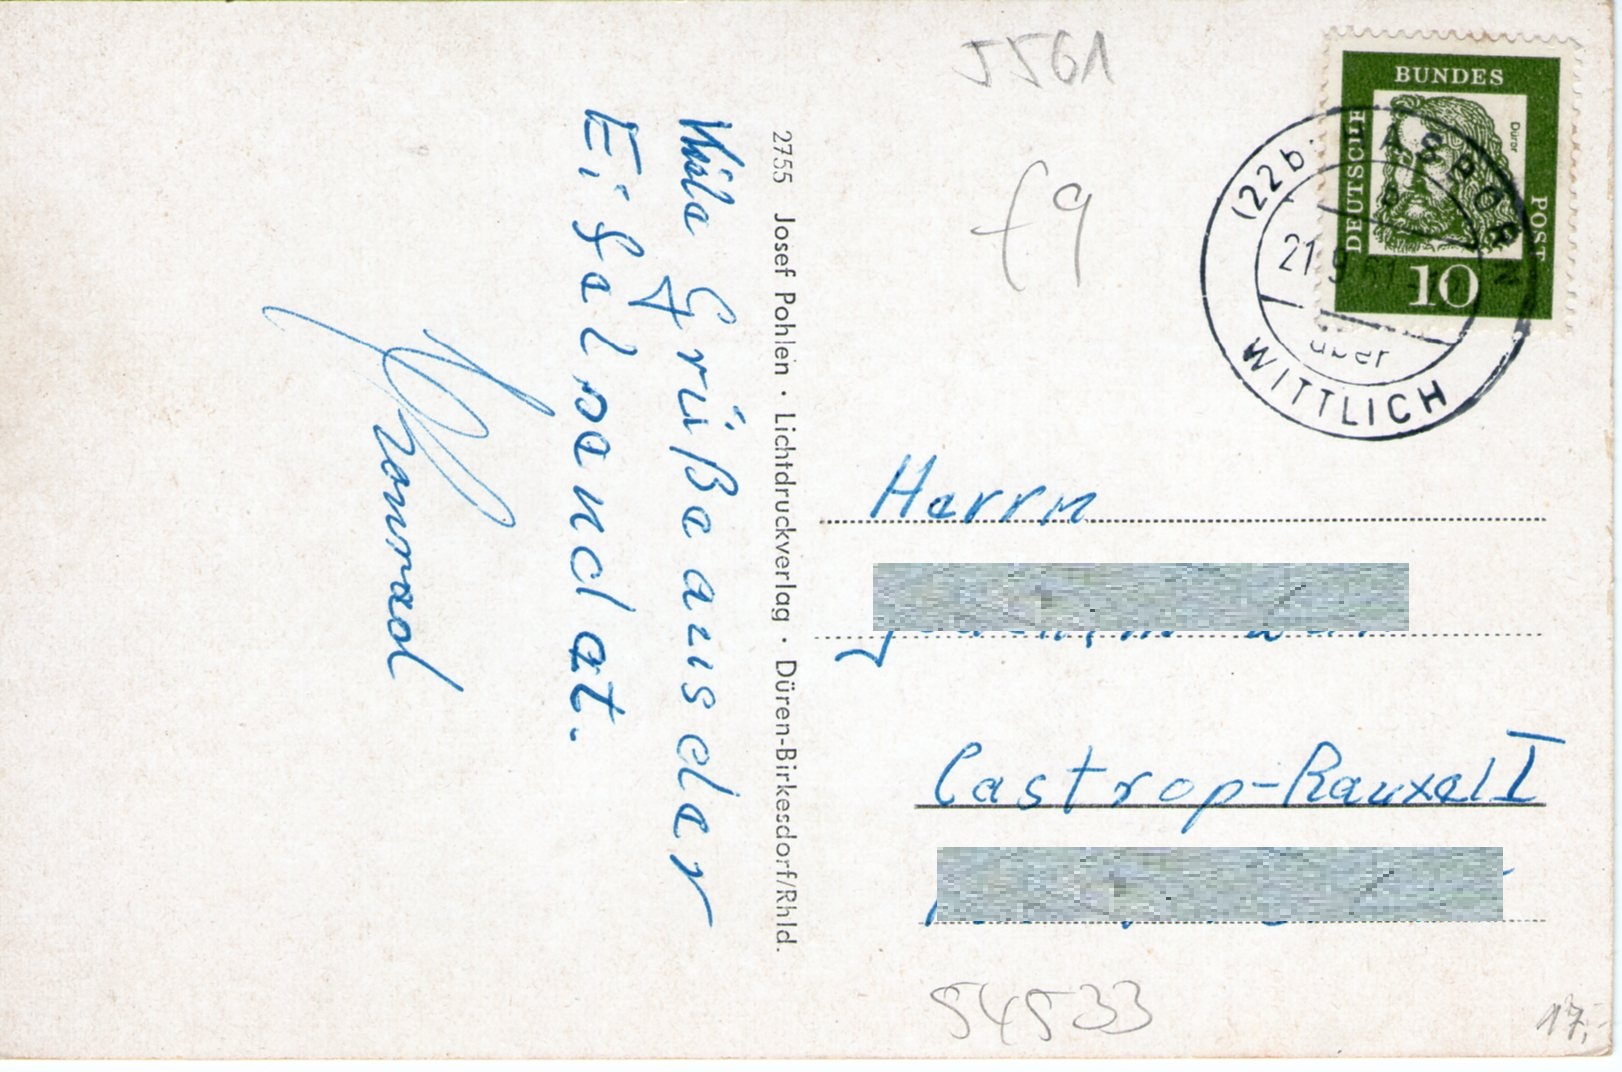 5561
f9
BUNDES
DEUTSCHE
POST
Dürer
10
(22b) LASBORN
a
21.9.61
über
WITTLICH
Viele Grüße aus der
Eifel sendet.
Konrad
2755 Josef Pohlen · Lichtdruckverlag · Düren-Birkesdorf/Rhld.
Herrn
Castrop-Rauxel I
54533
17,-